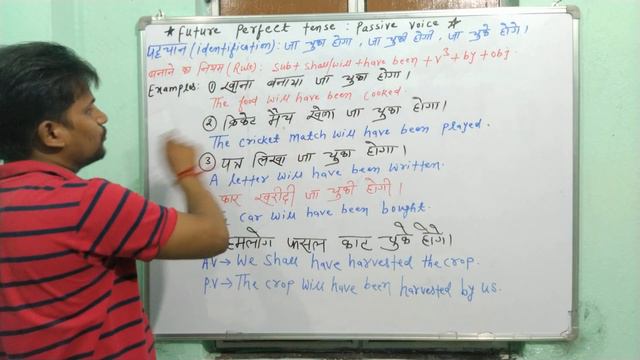 * Future Perfect tense : Passive voice *
पहचान (identification): जा चुका होगा, जा चुकी होगी, जा चुके होंगे।
बनाने का नियम (Rule): sub + shall/will + have been + v³ + by + obj.
Examples: ① खाना बनाया जा चुका होगा।
The food will have been cooked.
② क्रिकेट मैच खेला जा चुका होगा।
The cricket match will have been played.
③ पत्र लिखा जा चुका होगा।
A letter will have been written.
कार खरीदी जा चुकी होगी।
car will have been bought.
हमलोग फसल काट चुके होंगे।
AV→ We shall have harvested the crop.
PV→ The crop will have been harvested by us.